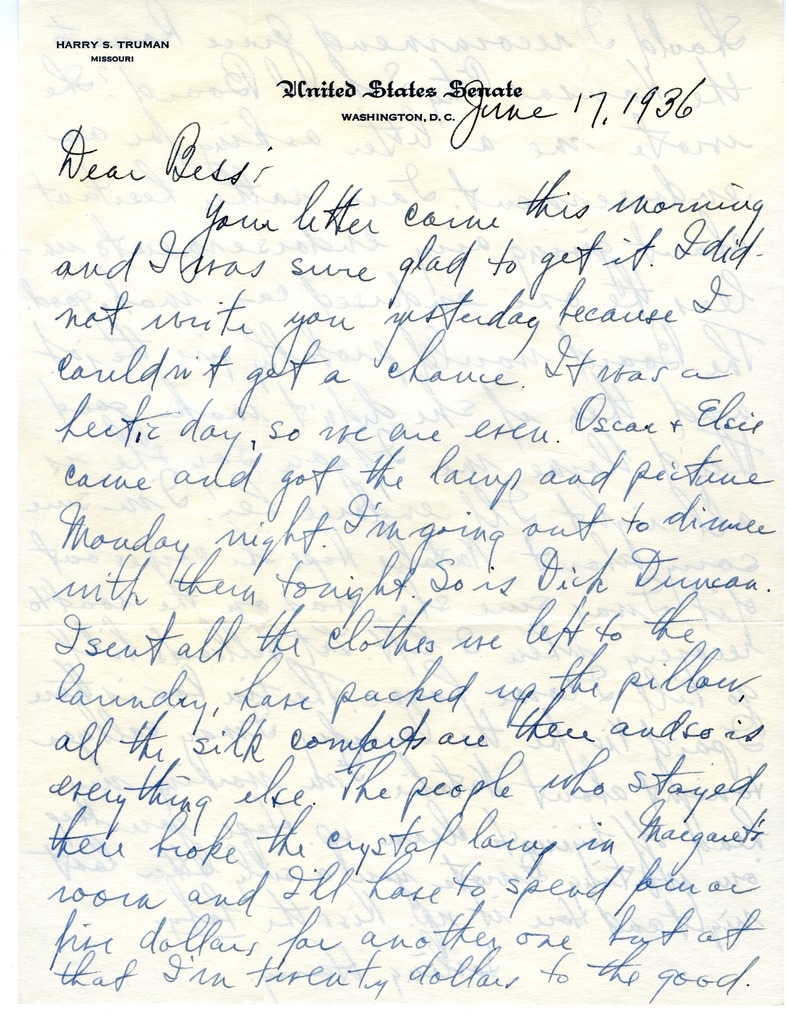 HARRY S. TRUMAN
MISSOURI
United States Senate
WASHINGTON, D.C.
June 17, 1936
Dear Bess:
Your letter came this morning
and I was sure glad to get it. I did
not write you yesterday because I
couldn't get a chance. It was a
hectic day, so we are even. Oscar + Elsie
came and got the lamp and picture
Monday night. I'm going out to dinner
with them tonight. So is Dick Duncan.
I sent all the clothes we left to the
laundry, have packed up the pillow,
all the silk comforts are there and so is
everything else. The people who stayed
there broke the crystal lamp in Margaret's
room and I'll have to spend four or
five dollars for another one but at
that I'm twenty dollars to the good.